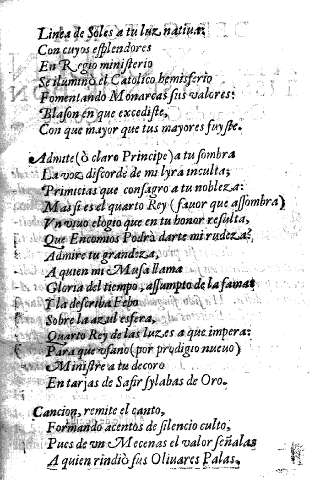 Linea de Soles a tu luz natiua:
Con cuyos esplendores
En Regio ministerio
Se iluminò el Catolico hemisferio
Fomentando Monarcas sus valores:
Blason en que excediste,
Con que mayor que tus mayores fuyste.
Admite (ò claro Principe) a tu sombra
La voz discorde de mi lyra inculta;
Primicias que consagro a tu nobleza:
Mas si es el quarto Rey (fauor que assombra)
Vn viuo elogio que en tu honor resulta,
Que Encomios Podrà darte mi rudeza?
Admire tu grandeza,
A quien mi Musa llama
Gloria del tiempo, assumpto de la fama:
Y la describa Febo
Sobre la azul esfera,
Quarto Rey de las luzes a que impera:
Para que vfano (por prodigio nueuo)
Ministre a tu decoro
En tarjas de Safir sylabas de Oro.
Cancion, remite el canto,
Formando acentos de silencio culto,
Pues de vn Mecenas el valor señalas
A quien rindiò sus Oliuares Palas.